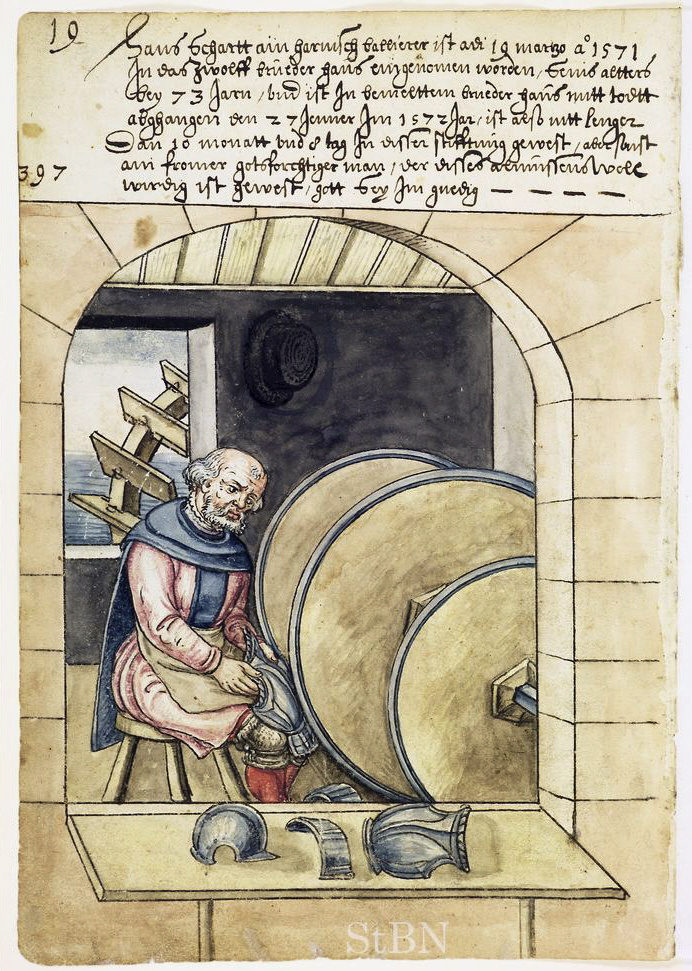 19
Hanns Schartt ain harnisch ballierer ist adi 19 martzo aº 1571
In das zwolff brueder haus eingenomen worden / seins altters
bey 73 Jarn / und ist In bemelttem brueder haus mitt todtt
abghangen den 27 Jenner Im 1572 Jar / ist also nitt lenger
Dan 10 monatt und 8 tag In disser stifftung gewest / aber sunst
397
ain fromer gotsforchtiger man / der disses almussens woll
wirdig ist gewest / gott sey Im gnedig
StBN